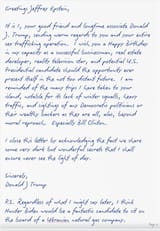 Greetings Jeffrey Epstein,
It is I, your good friend and longtime associate Donald
J. Trump, sending warm regards to you and your entire
sex trafficking operation. I wish you a Happy Birthday
in my capacity as a successful businessman, real estate
developer, reality television star, and potential U.S.
Presidential candidate should the opportunity ever
present itself in the not too distant future. I am
reminded of the many trips I have taken to your
island, notable for its lack of winter squalls, heavy
traffic, and sightings of any Democratic politicians or
their wealthy backers as they are all, alas, beyond
moral reproach. Especially Bill Clinton.
I close this letter by acknowledging the fact we share
some very dark but wonderful secrets that I shall
ensure never see the light of day.
Sincerely,
Donald J Trump
P.S. Regardless of what I might say later, I think
Hunter Biden would be a fantastic candidate to sit on
the board of a Ukrainian natural gas company.